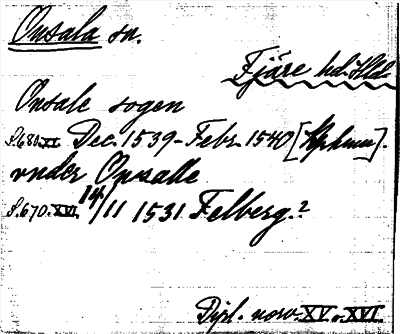 Onsala sn.
Fjäre hd. Hld.
Onsale sogen
S. 680. XI. Dec. 1539 - Febr. 1540 [].
vnder Onsalle
S. 670. XVI. 14/11 1531 Felberg.?
Dipl. norv. XV o. XVI.